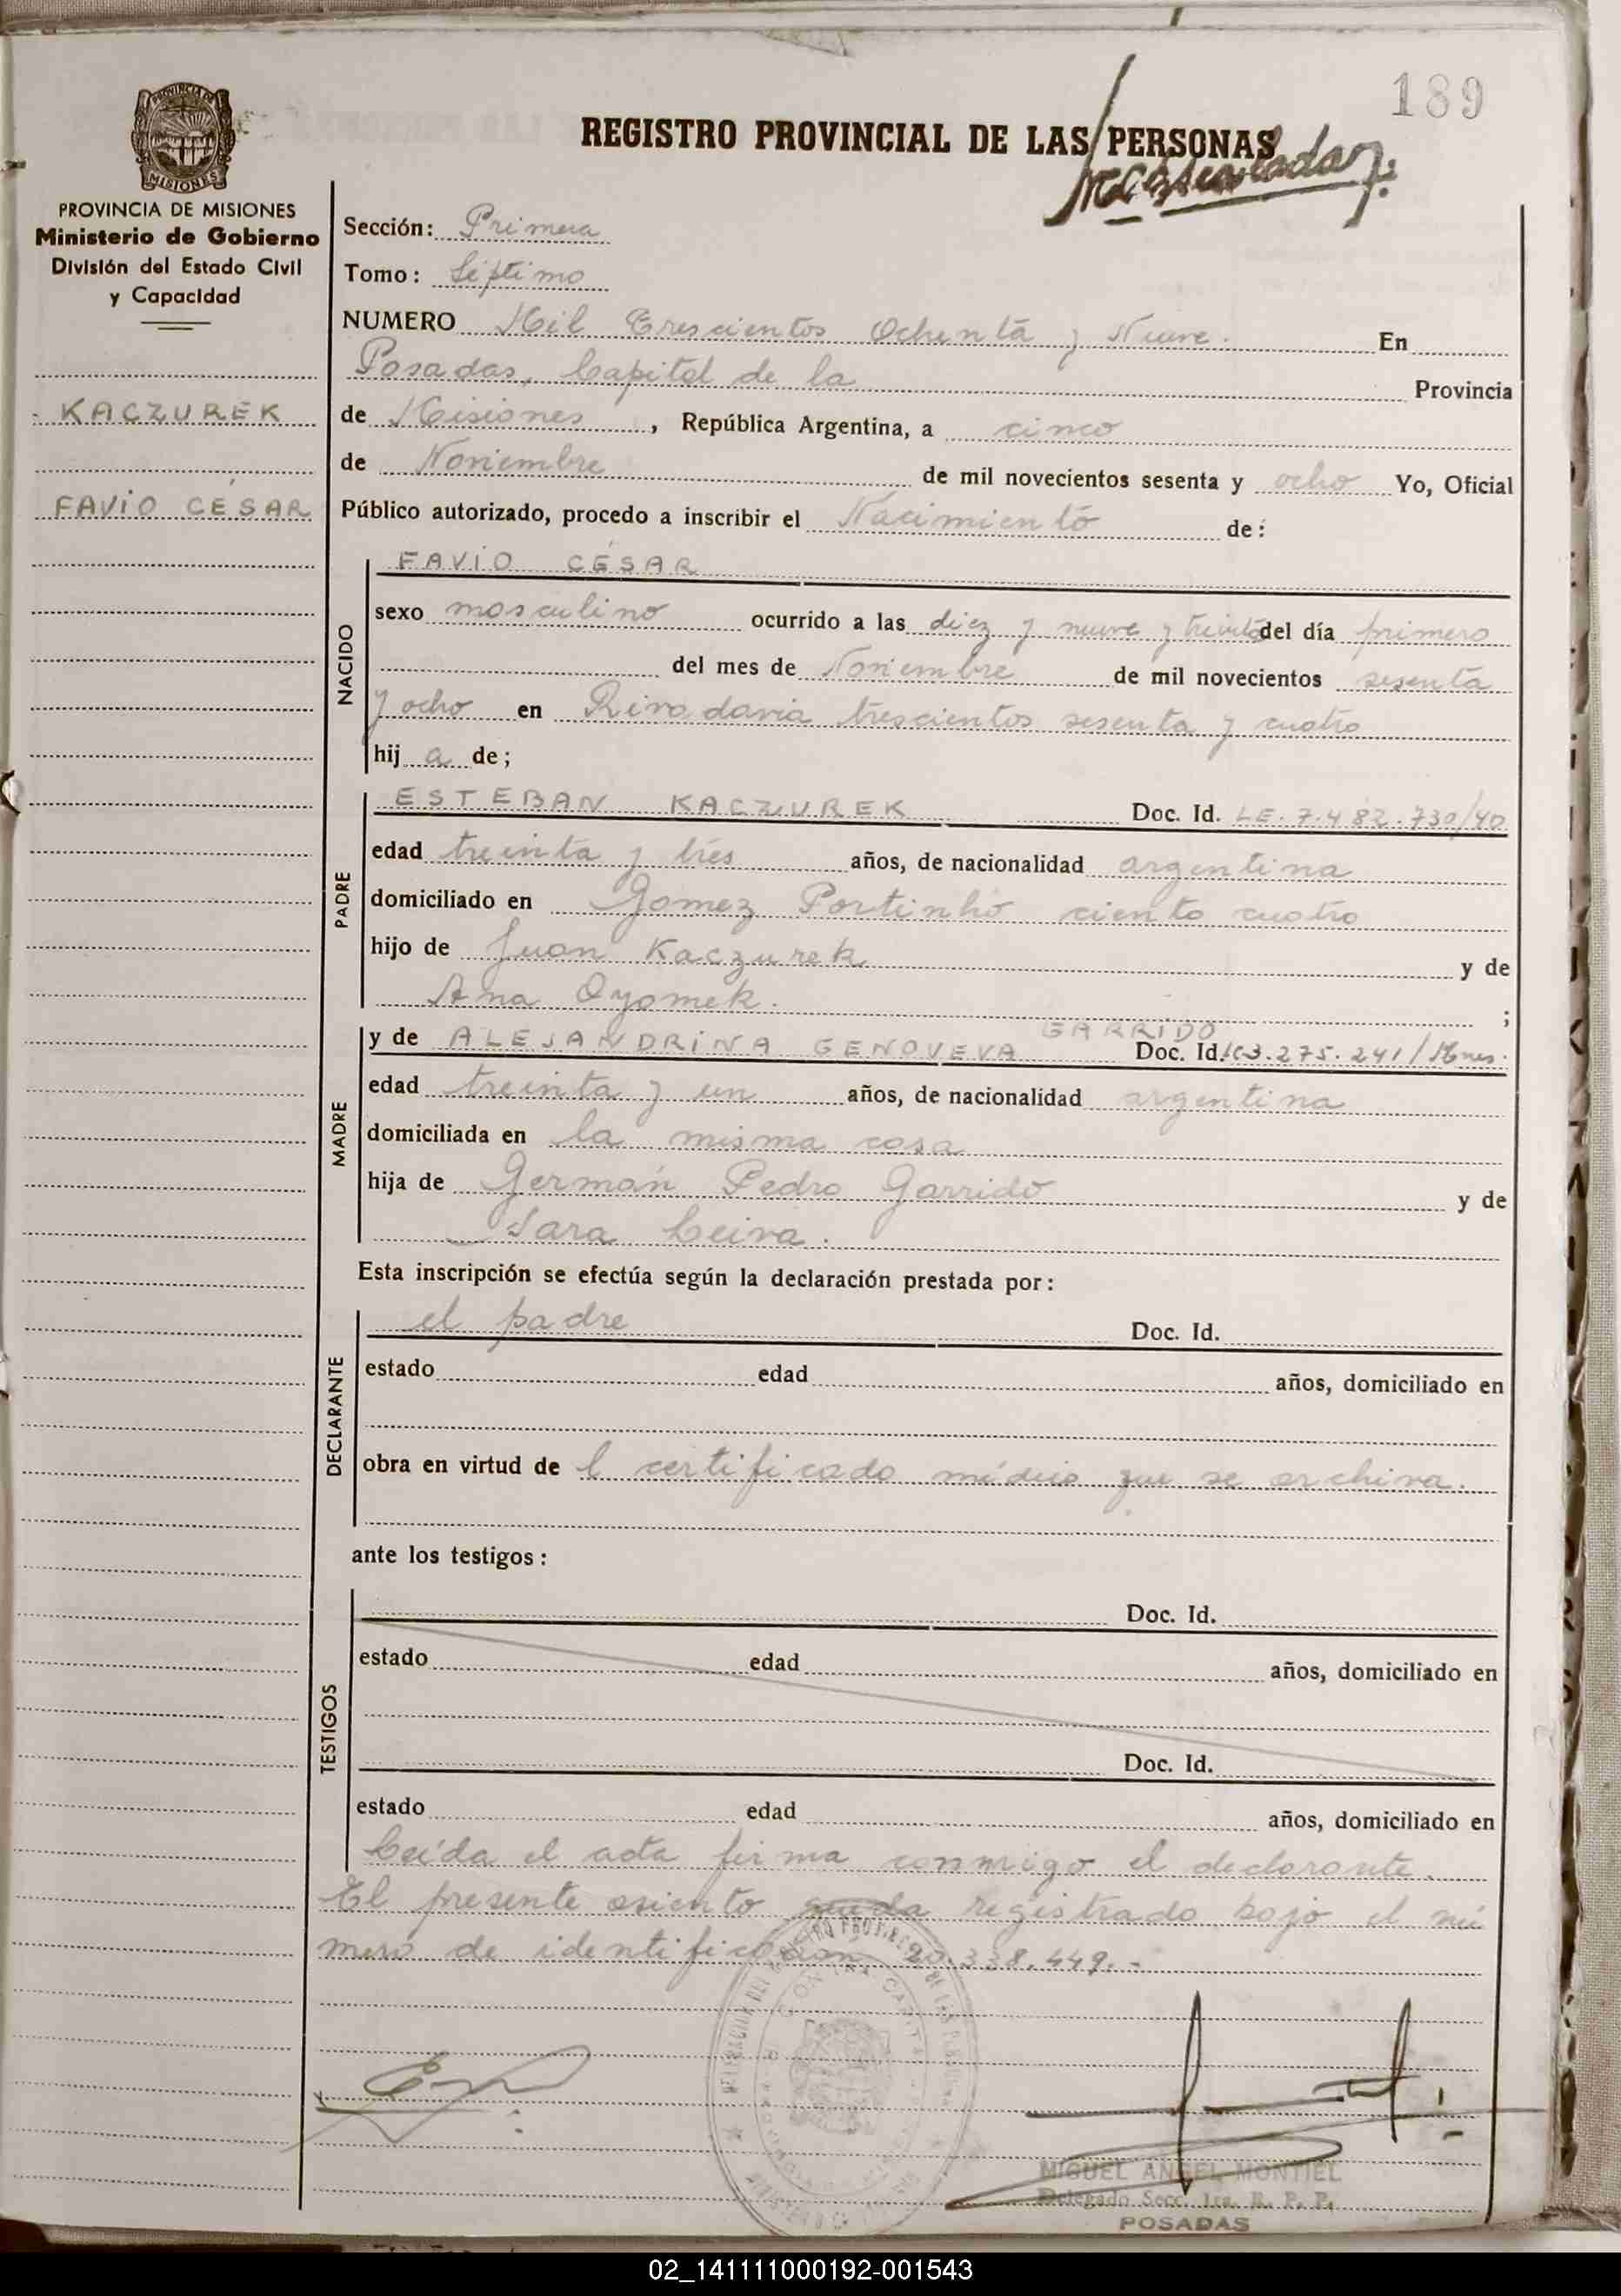 189
REGISTRO PROVINCIAL DE LAS PERSONAS
PROVINCIA DE MISIONES
Ministerio de Gobierno
División del Estado Civil
y Capacidad
KACZUREK
FAVIO CÉSAR
Sección: Primera
Tomo: Séptimo
NUMERO Mil Trescientos Ochenta y Nueve. En
Posadas, Capital de la Provincia
de Misiones, República Argentina, a cinco
de Noviembre de mil novecientos sesenta y ocho Yo, Oficial
Público autorizado, procedo a inscribir el Nacimiento de:
NACIDO
FAVIO CÉSAR
sexo masculino ocurrido a las diez y nueve y treinta del día primero
del mes de Noviembre de mil novecientos sesenta
y ocho en Rivadavia trescientos sesenta y cuatro
hij a de;
PADRE
ESTEBAN KACZUREK Doc. Id. LE. 7.482.730/40
edad treinta y tres años, de nacionalidad argentina
domiciliado en Gomez Portinho ciento cuatro
hijo de Juan Kaczurek y de
Ana Oyomek. ;
MADRE
GARRIDO
y de ALEJANDRINA GENOVEVA Doc. Id. 3.275.241/Mnes.
edad treinta y un años, de nacionalidad argentina
domiciliada en la misma casa
hija de Germán Pedro Garrido y de
Sara Leiva.
Esta inscripción se efectúa según la declaración prestada por:
DECLARANTE
el padre Doc. Id.
estado edad años, domiciliado en
obra en virtud de l certificado médico que se archiva.
ante los testigos:
TESTIGOS
Doc. Id.
estado edad años, domiciliado en
Doc. Id.
estado edad años, domiciliado en
Leída el acta firma conmigo el declarante.
El presente asiento queda registrado bajo el nú
mero de identificación 20.338.449.-
MIGUEL ANGEL MONTIEL
Delegado Secc. 1ra. R. P. P.
POSADAS
02_141111000192-001543